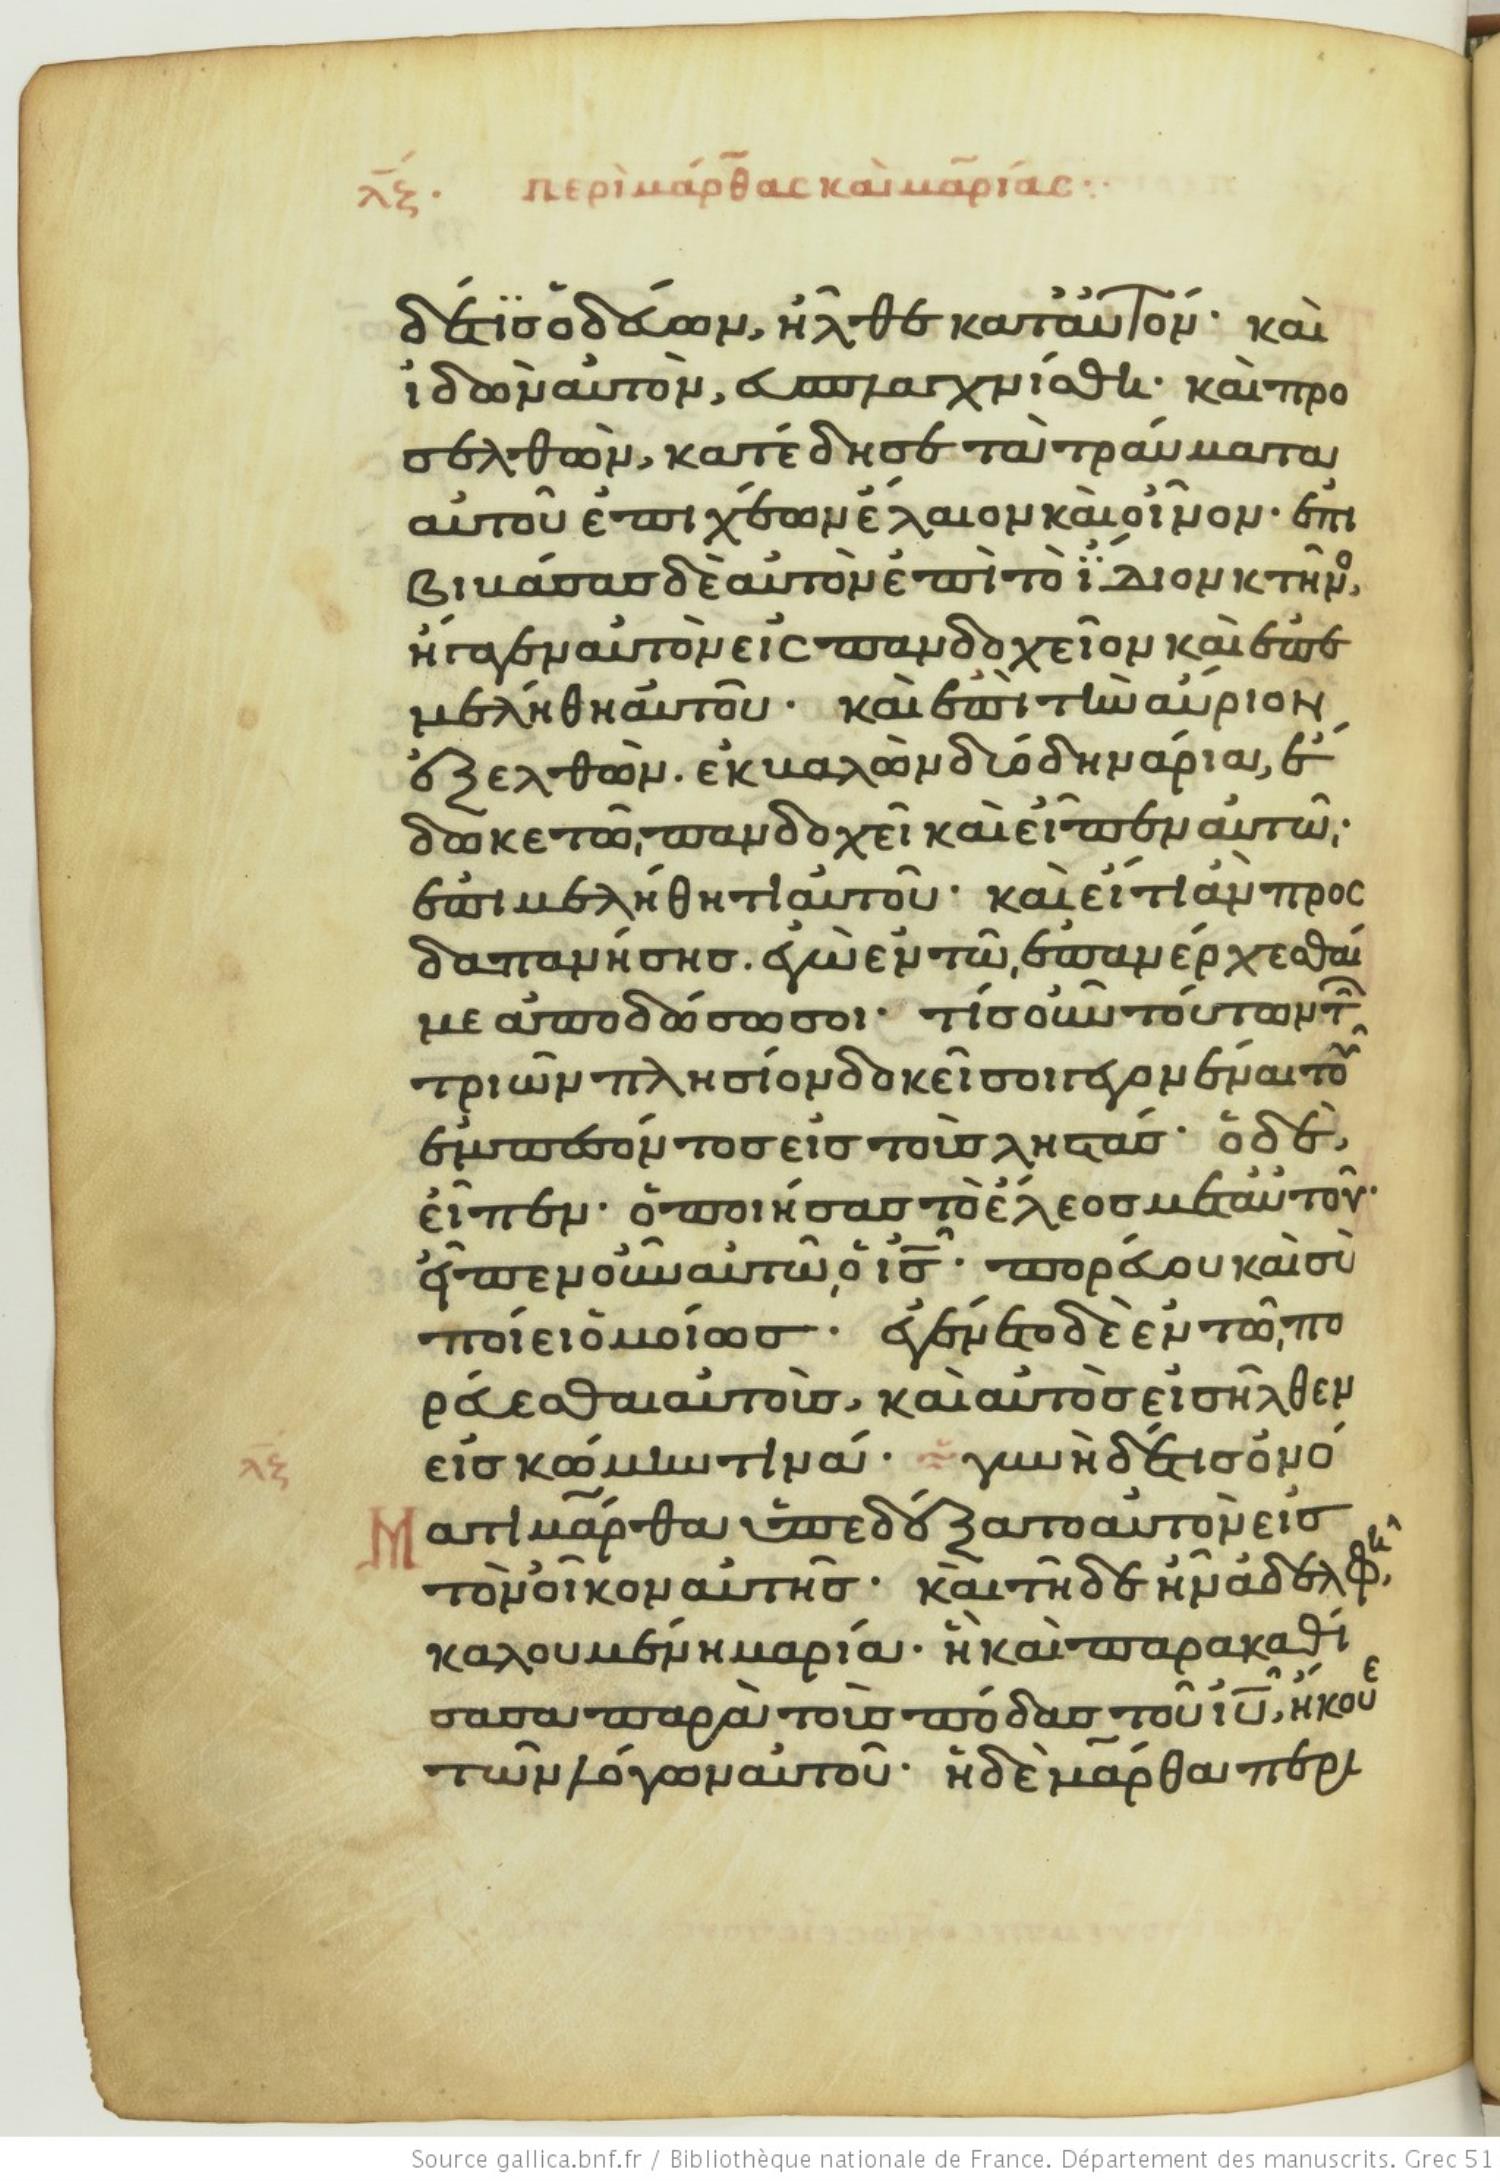 λζ· περὶ μάρθας καὶ μαρίας·
δέ τισ ὁδεύων, ἦλθε κατ' αὐτόν· καὶ
ἰδὼν αὐτὸν, ἐσπλαγχνίσθη· καὶ προ
σελθὼν, κατέδησε τὰ τραύματα
αὐτοῦ ἐπιχέων ἔλαιον καὶ οἶνον· ἐπι
βιβάσασ δὲ αὐτὸν ἐπὶ τὸ ἴδιον κτῆνο,
ἤγαγεν αὐτὸν εἰς πανδοχεῖον καὶ ἐπε
μελήθη αὐτοῦ· καὶ ἐπὶ τὴν αὔριον
ἐξελθὼν. ἐκβαλὼν δύο δηνάρια, ἔ
δωκε τῶ πανδοχεῖ καὶ εἶπεν αὐτῶ·
ἐπιμελήθητι αὐτοῦ· καὶ εἴ τι ἂν προς
δαπανήσησ. ἐγὼ ἐν τῶ ἐπανέρχεσθαί
με ἀποδώσω σοι· τίσ οὖν τούτων τ
τριῶν πλησίον δοκεῖ σοι γεγονέναι τοῦ
ἐμπεσόντοσ εἰσ τοὺσ ληστάσ· ὁ δὲ,
εἶπεν· ὁ ποιήσασ τὸ ἔλεοσ μετ' αὐτοῦ·
εἶπεν οὖν αὐτῶ ὁ ισ· πορεύου καὶ σὺ
ποίει ὁμοίωσ· ἐγένετο δὲ ἐν τῶ πο
ρεύεσθαι αὐτοὺσ, καὶ αὐτὸσ εἰσῆλθεν
εἰσ κώμην τινά· γυνὴ δέ τισ ὀνό
λζ
ματι μάρθα ὑπεδέξατο αὐτὸν εἰσ
τὸν οἶκον αὐτῆσ· καὶ τῆδε ἦν ἀδελφὴ,
καλουμένη μαρία· ἣ καὶ παρακαθί
σασα παρὰ τοὺσ πόδασ τοῦ ιυ, ἤκουε
τῶν λόγων αὐτοῦ· ἡ δὲ μάρθα περι
Source gallica.bnf.fr / Bibliothèque nationale de France. Département des manuscrits. Grec 51